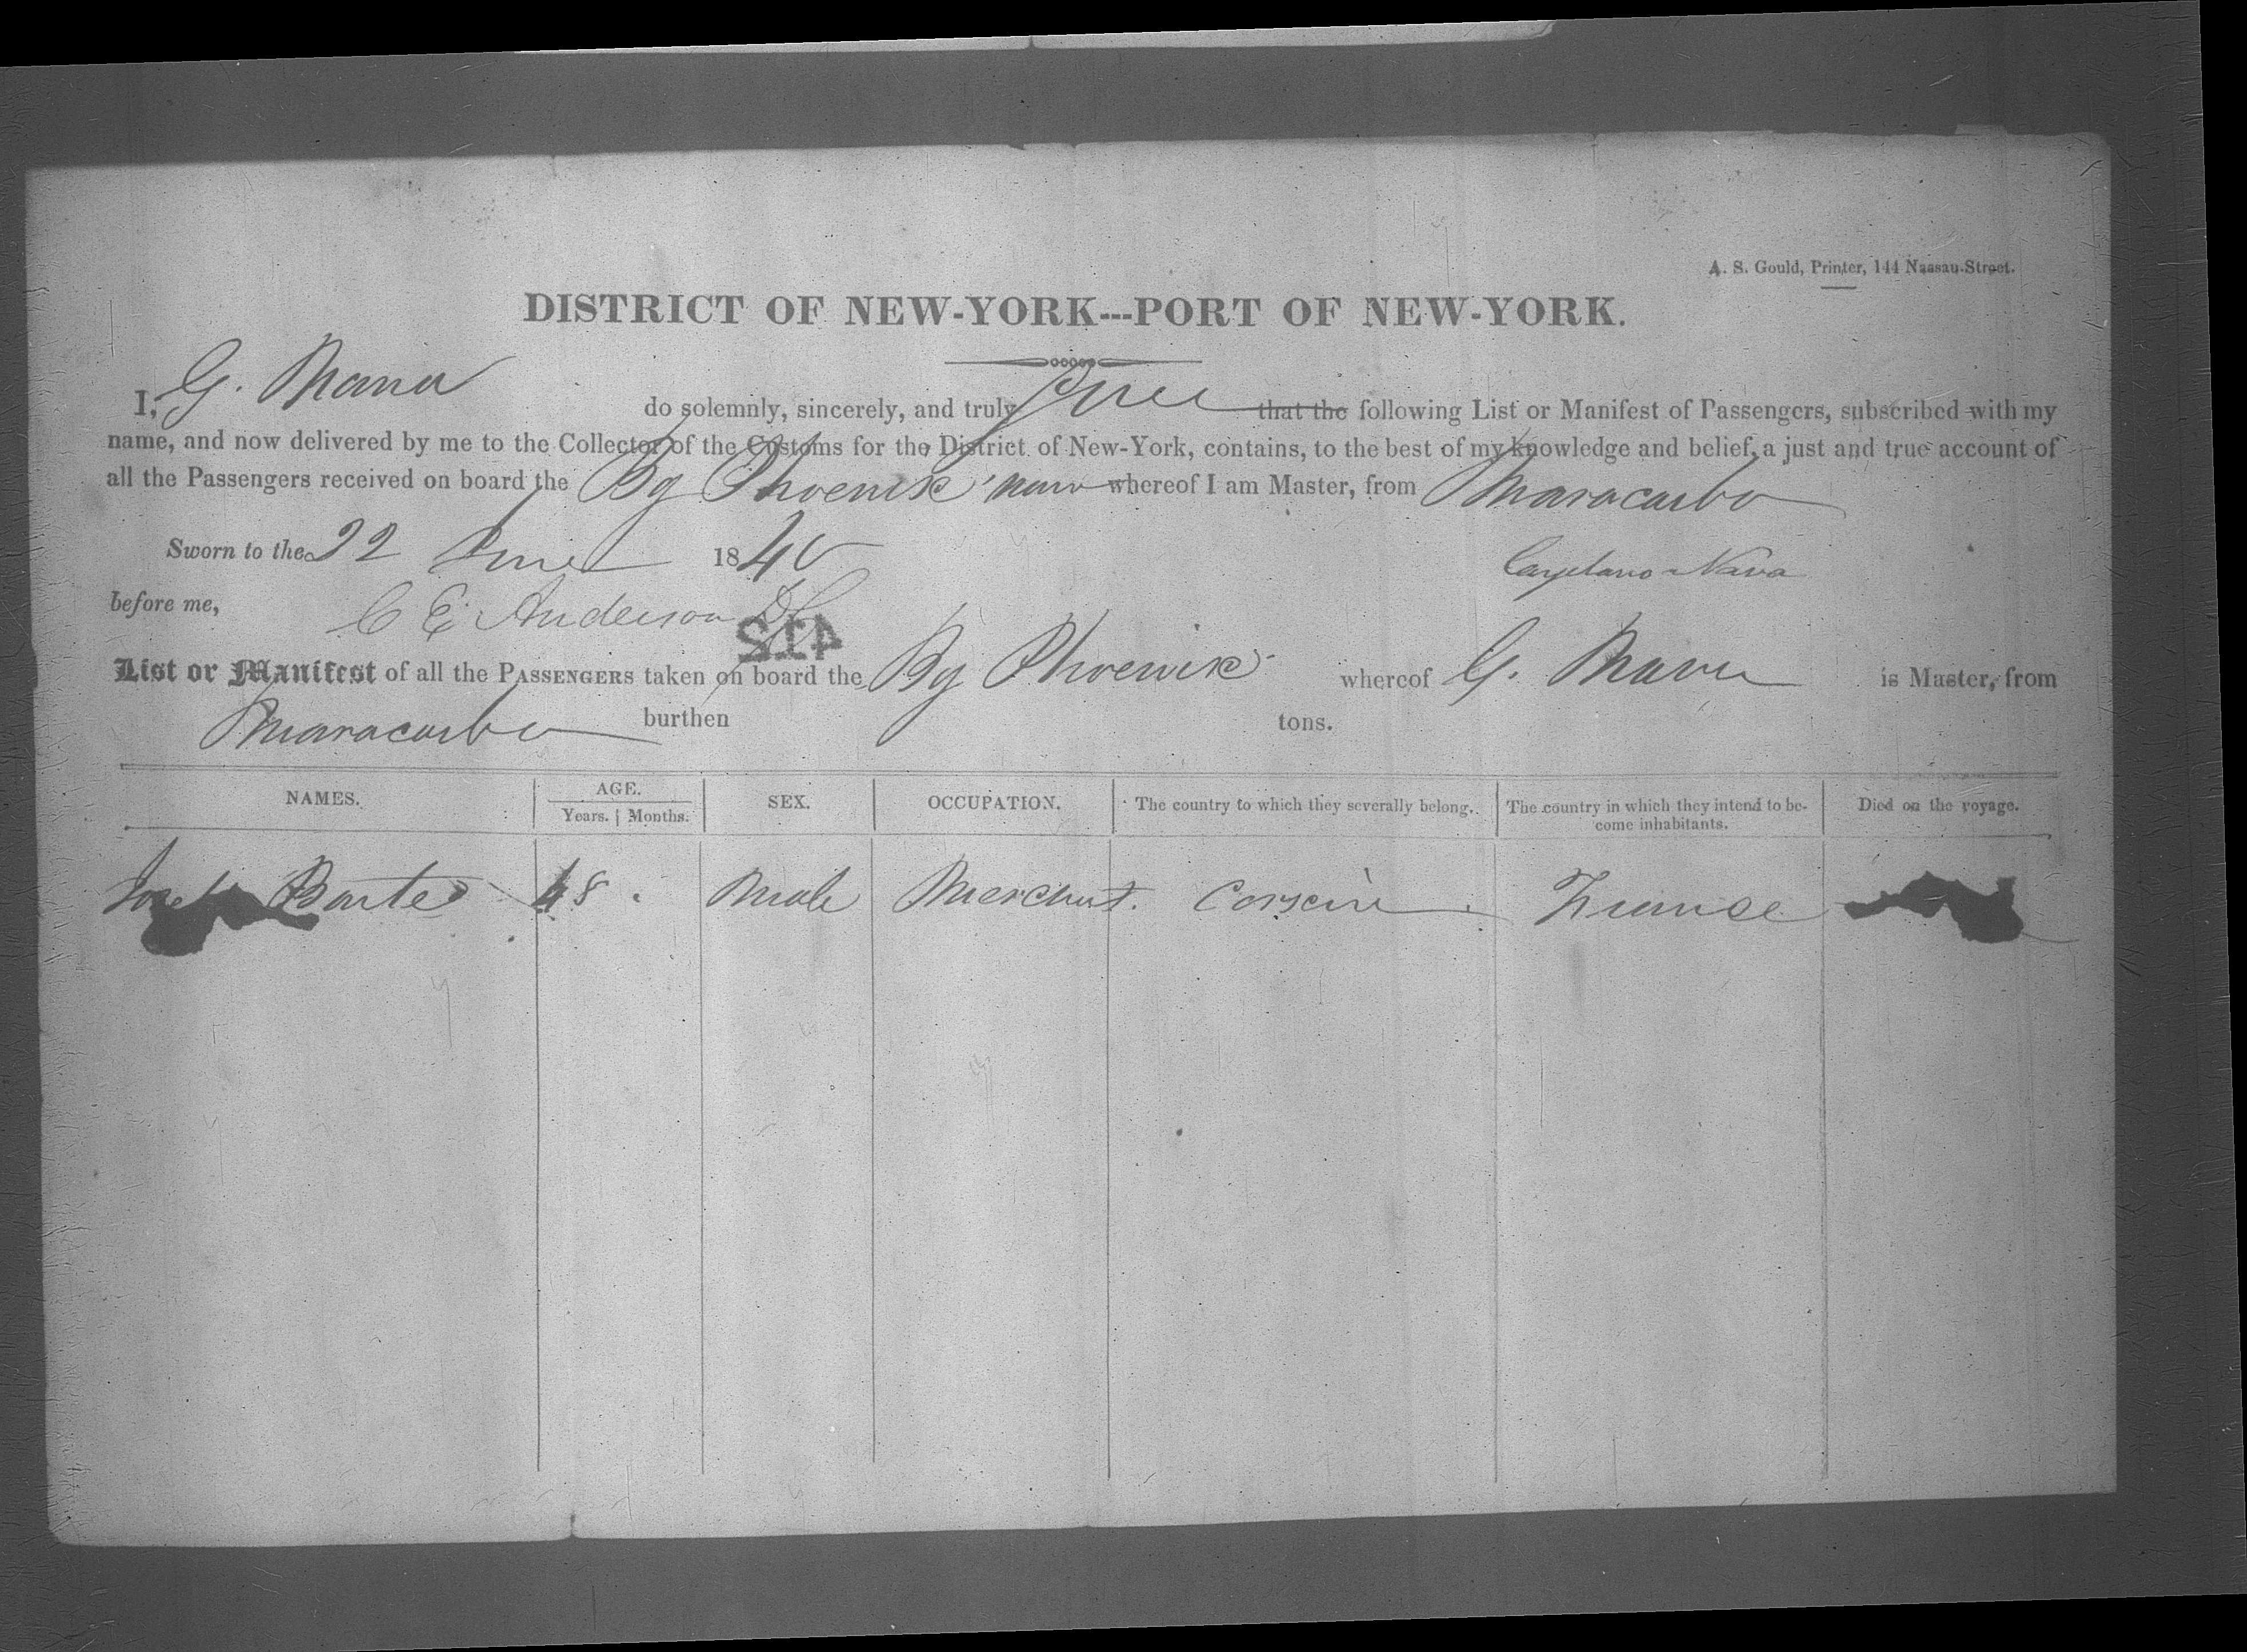 A. S. Gould, Printer, 144 Nassau-Street.
DISTRICT OF NEW-YORK---PORT OF NEW-YORK.
I, G. do solemnly, sincerely, and truly that the following List or Manifest of Passengers, subscribed with my
name, and now delivered by me to the Collector of the Customs for the District of New-York, contains, to the best of my knowledge and belief, a just and true account of
all the Passengers received on board the Bg Phoenix whereof I am Master, from Maracaibo
Sworn to the 22 June 1840
Cayetano Nava
before me, C E Anderson
412
List or Manifest of all the PASSENGERS taken on board the Bg Phoenix whereof G. is Master, from
Maracaibo burthen tons.
NAMES. AGE. SEX. OCCUPATION. The country to which they severally belong. The country in which they intend to be- Died on the voyage.
Years. Months. come inhabitants.
48 Male Merchant. France